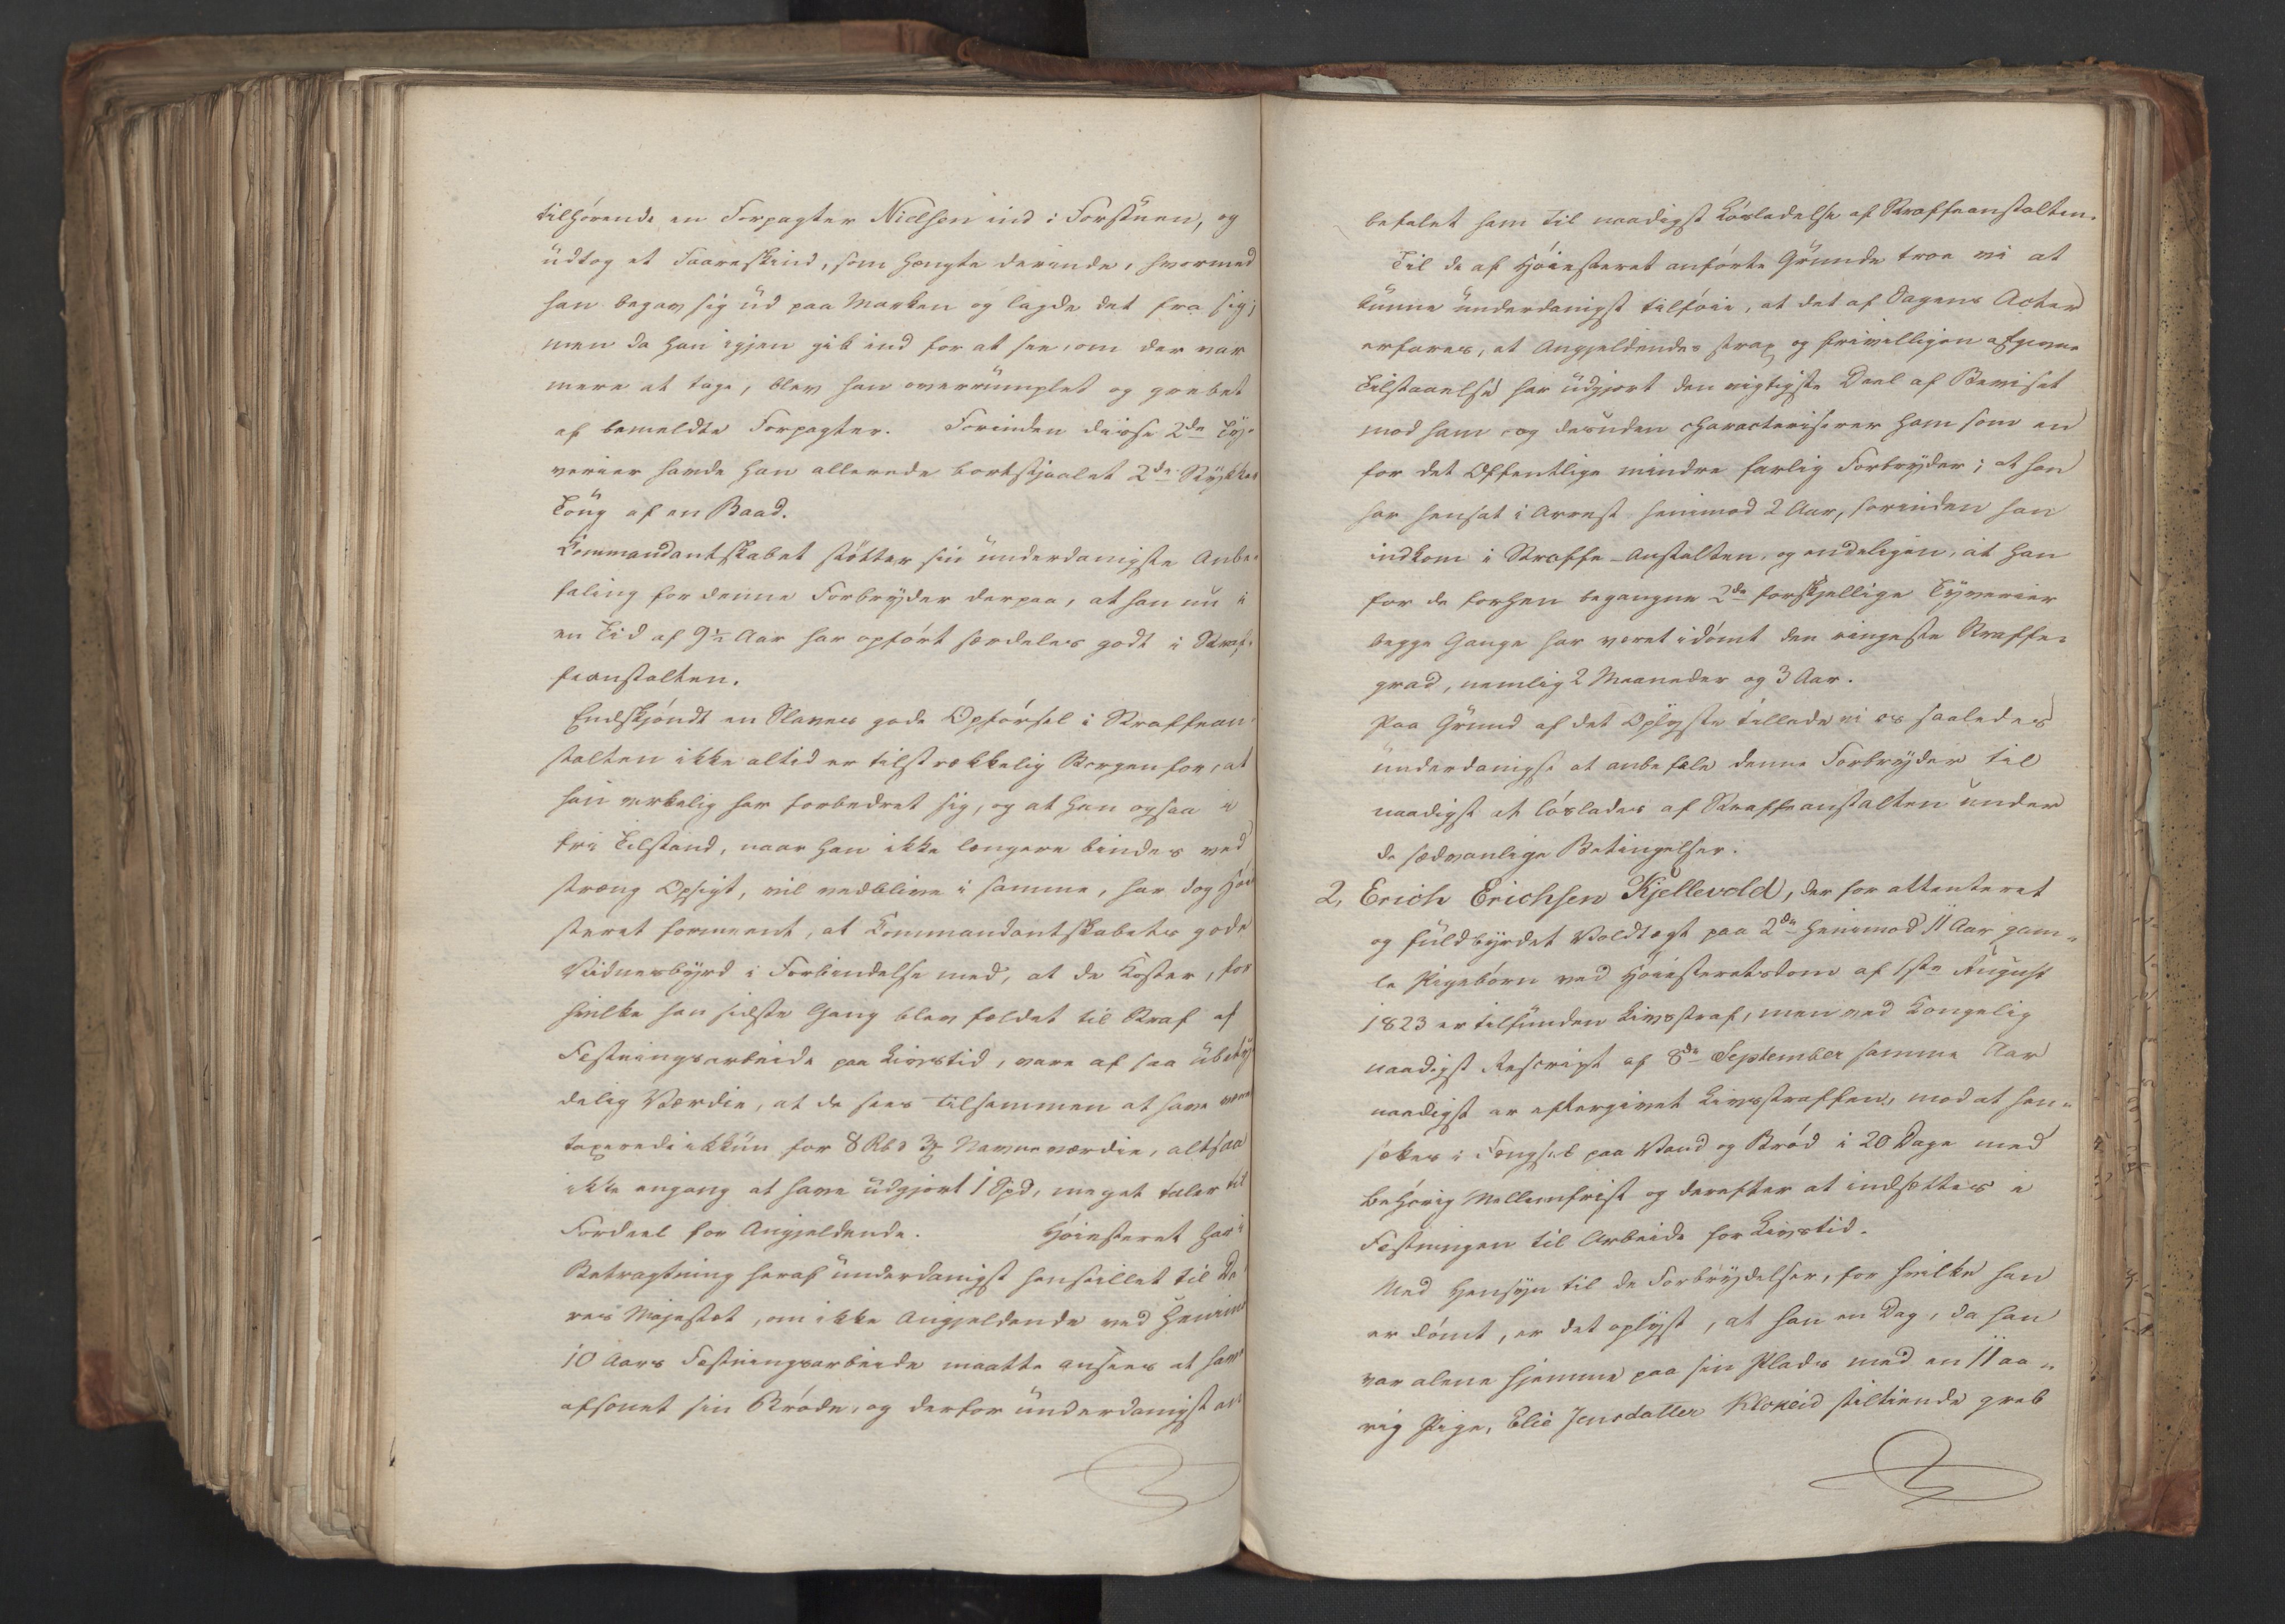 tilhørende en Forpagter Nielsen ind i Forstuen, og
udtog et Faareskind, som hængte derinde, hvormed
han begav sig ud paa Marken og lagde det fra sig;
men da han igjen gik ind for at see, om der var
mere at tage, blev han overrumplet og grebet
af bemeldte Forpagter. Forinden disse 2de Ty-
verier havde han allerede bortstjaalet 2de Stykker
Toug af en Baad.
Commandantskabet støtter sin underdanigste Anbe-
faling for denne Forbryder derpaa, at han nu i
en Tid af 9½ Aar har opført særdeles godt i Straf-
feanstalten.
Endskjøndt en Slaves gode Opførsel i Straffean-
stalten ikke altid er tilstrækkelig Borgen for, at
han virkelig har forbedret sig, og at han ogsaa i
fri Tilstand, naar han ikke længere bindes ved
streng Opsigt, vil vedblive i samme, har dog Høie-
steret formeent, at Commandantskabets gode
Vidnesbyrd i Forbindelse med, at de Koster, for
hvilke han sidste Gang blev fældet til Straf af
Festningsarbeide paa Livstid, vare af saa ubety-
delig Værdie, at de sees tilsammen at have været
taxerede ikkun for 8 Rbd 3 ß Navneværdie, altsaa
ikke engang at have udgjort 1 Spd, meget taler til
Fordeel for Angjeldende. Høiesteret har i
Betragtning heraf underdanigst henstillet til De-
res Majestæt, om ikke Angjeldende ved henimod
10 Aars Festningsarbeide maatte ansees at have
afsonet sin Brøde, og derfor underdanigst an-
befalet ham til naadigst Løsladelse af Straffeanstalten.
Til de af Høiesteret anførte Grunde troe vi at
kunne underdanigst tilføie, at det af Sagens Acter
erfares, at Angjeldendes strax og frivilligen afgivne
Tilstaaelse har udgjort den vigtigste Deel af Beviset
mod ham og desuden characteriserer ham som en
for det Offentlige mindre farlig Forbryder; at han
har hensat i Arrest henimod 2 Aar, forinden han
indkom i Straffe-Anstalten, og endeligen, at han
for de forhen begangne 2de forskjellige Tyverier
begge Gange har været idømt den ringeste Straffe-
grad, nemlig 2 Maaneder og 3 Aar.
Paa Grund af det Oplyste tillade vi os saaledes
underdanigst at anbefale denne Forbryder til
naadigst at løslades af Straffeanstalten under
de sædvanlige Betingelser.
2, Erich Erichsen Kjellevold, der for attenteret
og fuldbyrdet Voldtægt paa 2de henimod 11 Aar gam-
le Pigebørn ved Høiesteretsdom af 1ste August
1823 er tilfunden Livsstraf, men ved Kongelig
naadigst Rescript af 8de September samme Aar
naadigst er eftergivet Livsstraffen, mod at hen-
sættes i Fængsel paa Vand og Brød i 20 Dage med
behørig Mellemfrist og derefter at indsættes i
Festningen til Arbeide for Livstid.
Med Hensyn til de Forbrydelser, for hvilke han
er dømt, er det oplyst, at han en Dag, da han
var alene hjemme paa sin Plads med en 11 aa-
rig Pige, Elie Jensdatter Klokeid stiltiende greb